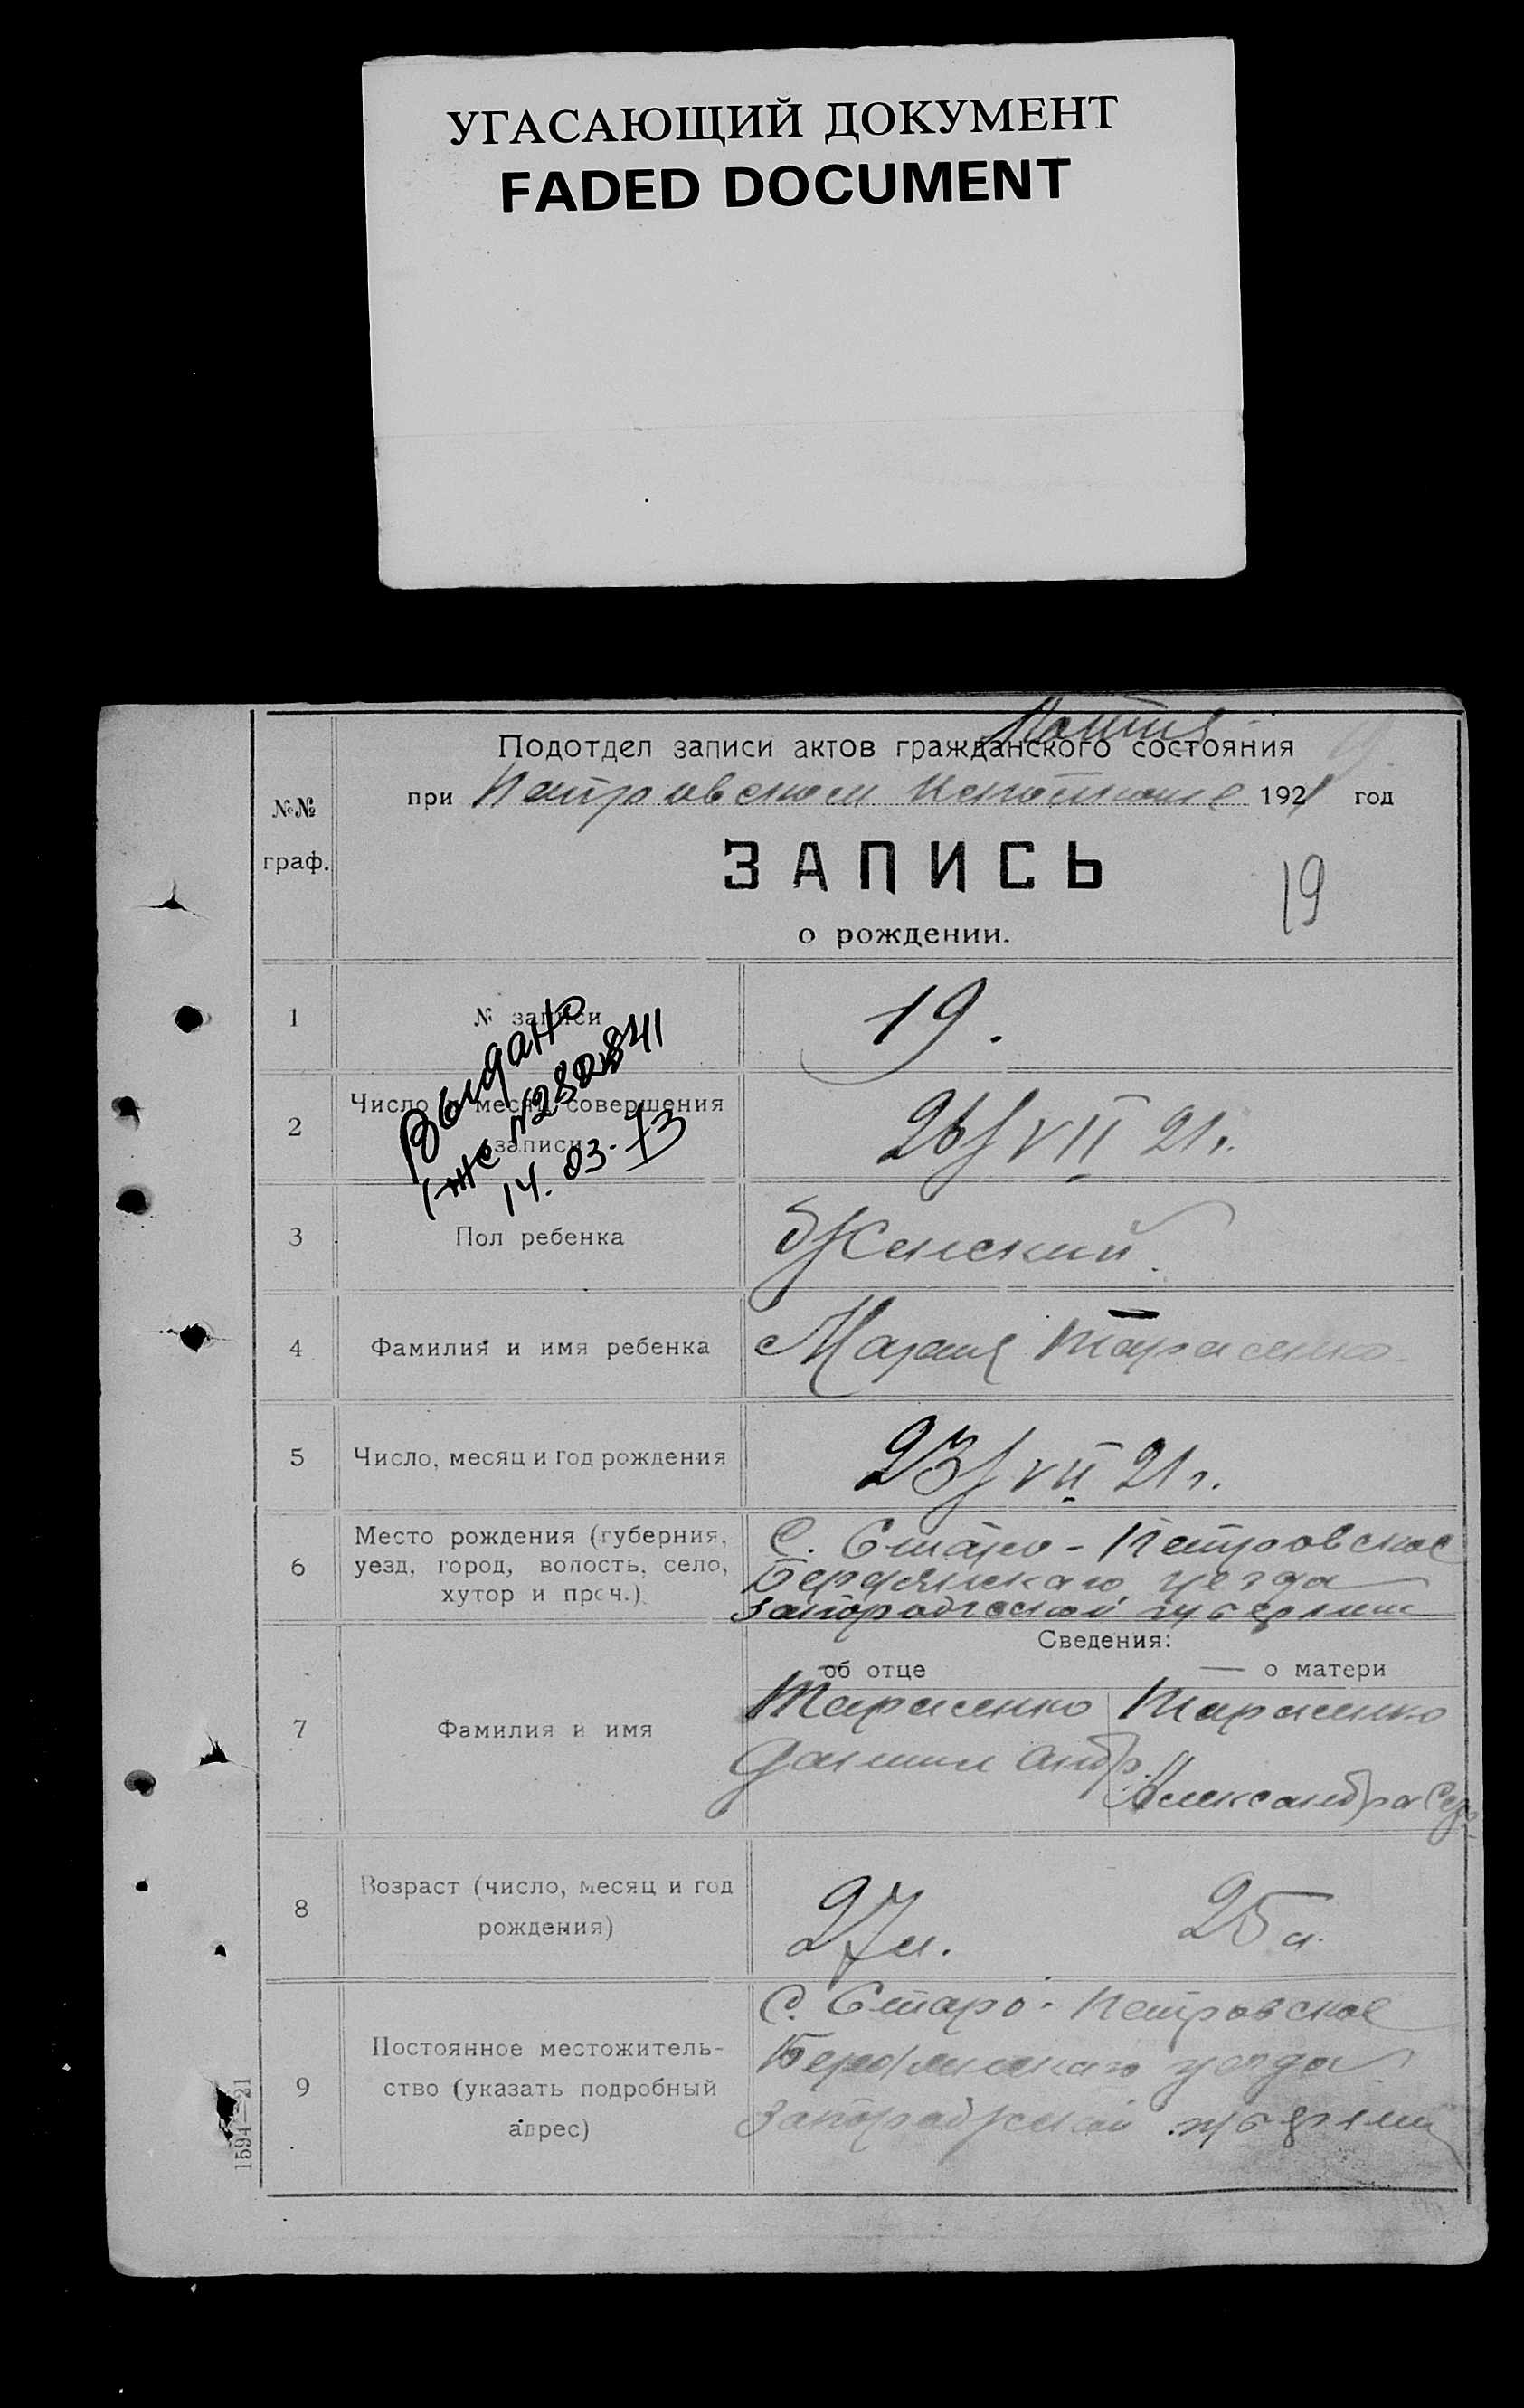 УГАСАЮЩИЙ ДОКУМЕНТ
FADED DOCUMENT
Копия
Подотдел записи актов гражданского состояния
при Петровском Исполкоме 1921 год
№№
граф.
ЗАПИСЬ
19
о рождении.
1
№ записи
19.
Выдано
№280841
14.03-73
2
Число и месяц совершения
записи
26/VII 21г.
3
Пол ребенка
Женский
4
Фамилия и имя ребенка
Мария Тарасенко
5
Число, месяц и год рождения
23/VII 21г.
6
Место рождения (губерния,
уезд, город, волость, село,
хутор и проч.)
С. Старо-Петровское
Бердянскаго уезда
Запорожской губернии
Сведения:
об отце
о матери
7
Фамилия и имя
Тарасенко
Даниил Андр.
Тарасенко
Александра
8
Возраст (число, месяц и год
рождения)
27л.
25л.
9
Постоянное местожитель-
ство (указать подробный
адрес)
С. Старо-Петровское
Бердянскаго уезда
Запорожской губернии
1594—21